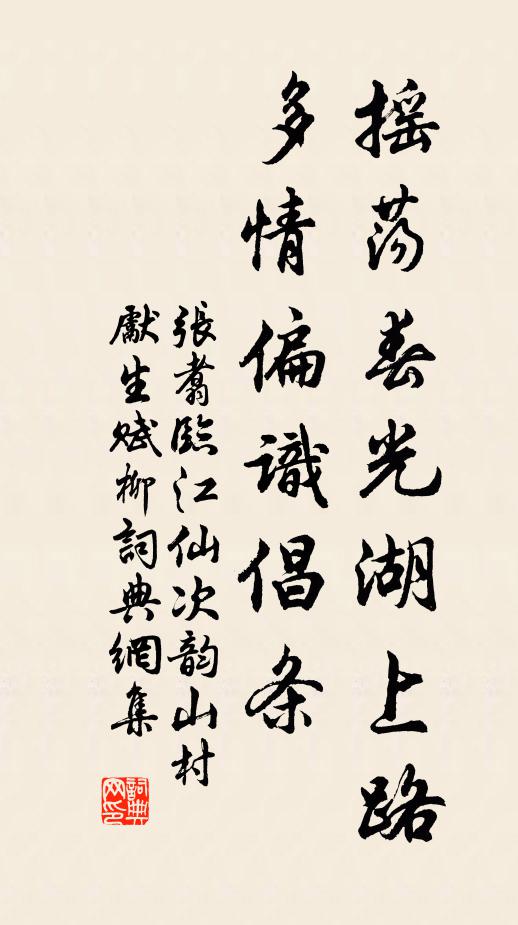 摇荡春光湖上路
多情偏識倡条
張翥臨江仙次韵山村
獻生賦柳詞典網集
詞典网印